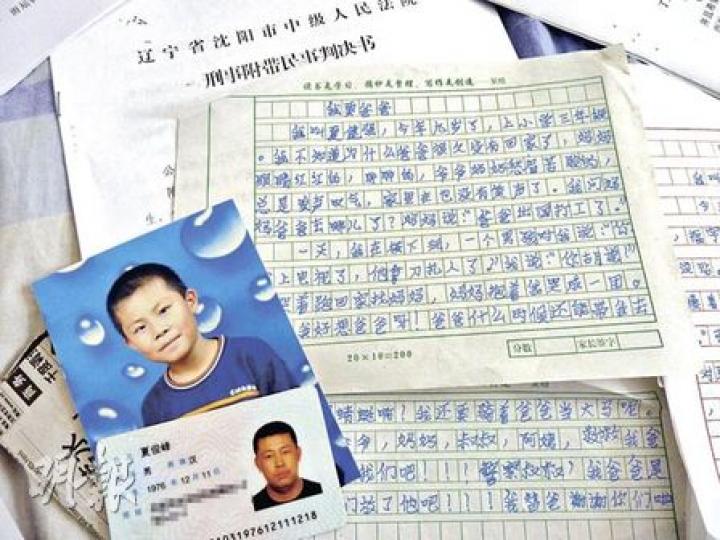 辽宁省沈阳市中级人民法院
刑事附带民事判决书
读书是学习,摘抄是整理,写作是创造
我要爸爸
我叫夏健强,今年九岁了,上小学三年级
。我不知道为什么爸爸很久没有回家了,妈妈
眼睛红红的,肿肿的,爷爷奶奶愁眉苦脸的,
总是唉声叹气,家里在也没有笑声了。我问妈
妈爸爸去哪儿了?妈妈说:"爸爸出国打工了。"
一天,我在楼下玩,一个男孩对我说:"你
上电视了,他拿刀扎人了",我说:"你胡说"
哭着跑回家找妈妈,妈妈抱着我哭成一团。
我好想爸爸呀!爸爸什么时候还能带我去
20×10=200
分数
家长签字
蜻蜓啊!我还要骑着爸爸当大马呢。
爷,妈妈,叔叔,阿姨,救救我爸
我们吧!!!警察叔叔!我爸爸是
们放了他吧!!!我替爸谢谢你们啦
夏俊峰
男 民族 汉
1976 年 12 月 11 日
103197612111218
明報